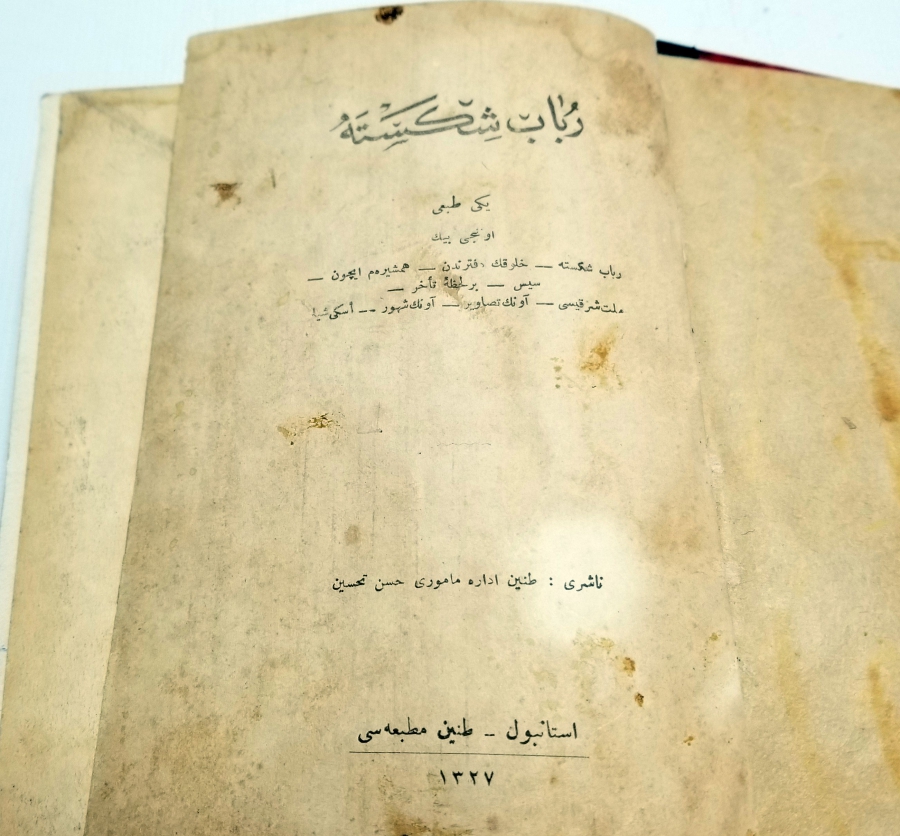 رُبَابِ شِكَسْتَهُ
يكی طبعی
اونجی بيك
رباب شكسته — خلوقك دفترندن — همشيره‌م ايچون —
سيس — برلحظهٔ تأخر —
ملت شرقيسی — آونك تصاوير — آونك شهور — أسكی شيلر
ناشری : طنين اداره ماموری حسن تحسين
استانبول ـ طنين مطبعه‌سی
١٣٢٧